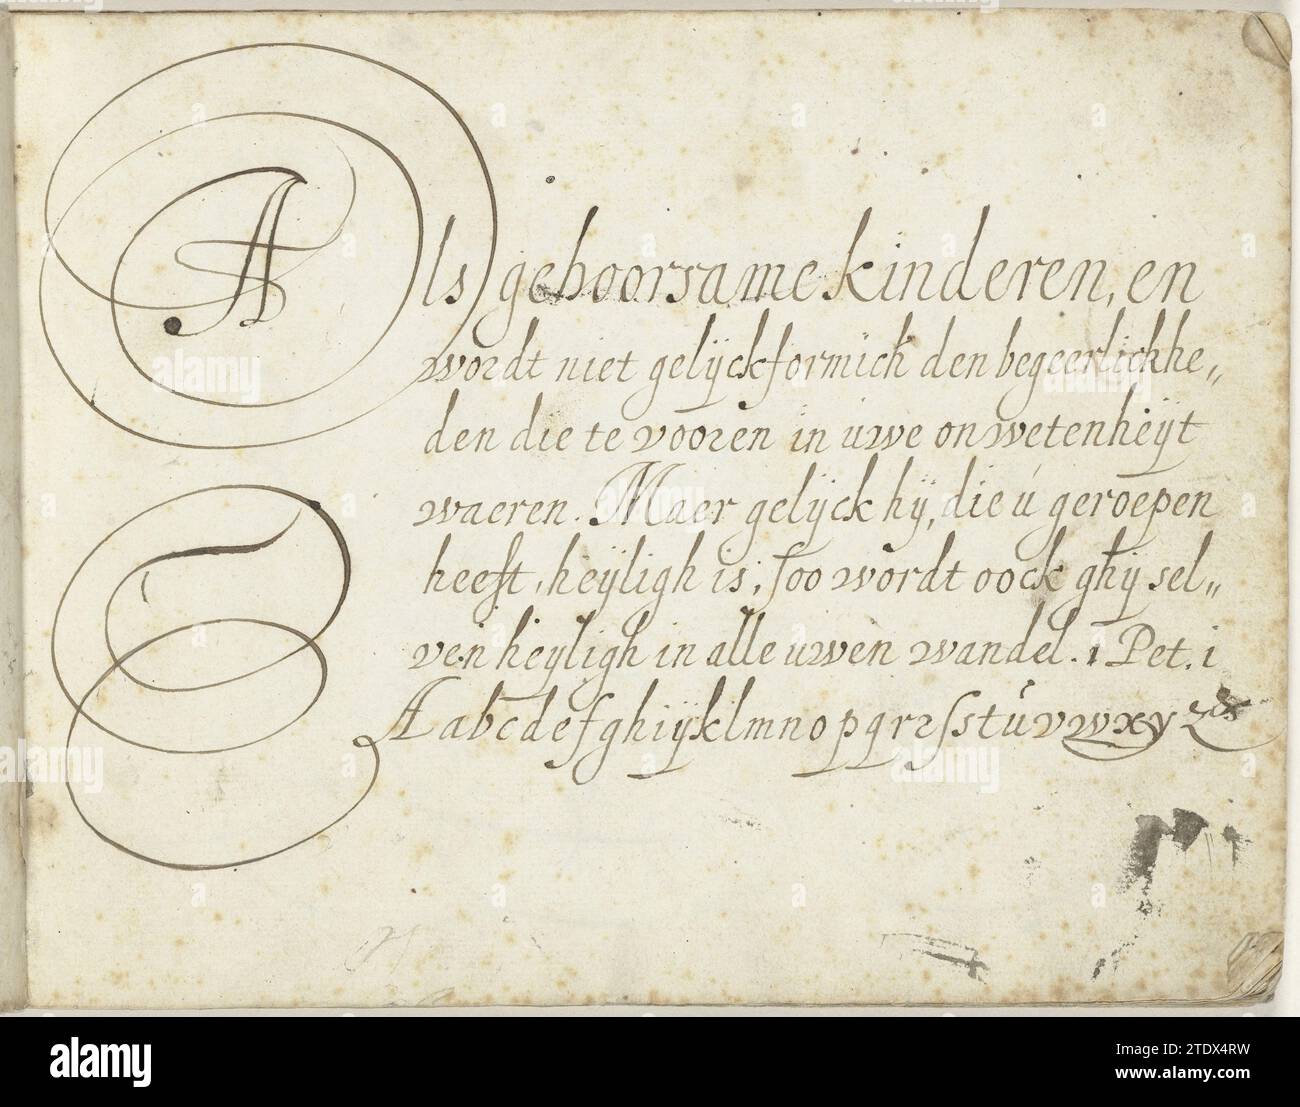 Als gehoorsame kinderen, en
wordt niet gelijckformich den begeerlickhe„
den die te vooren in uwe onwetenheijt
waeren. Maer gelijck hij, die ú geroepen
heeft, heijligh is; soo wordt oock ghij sel„
ven heijligh in alle uwen wandel. 1 Pet. i
A a b c d e f g h i ij k l m n o p q r 2 ſ s t ú v w x y z &
alamy
Image ID: 2TDX4RW
www.alamy.com